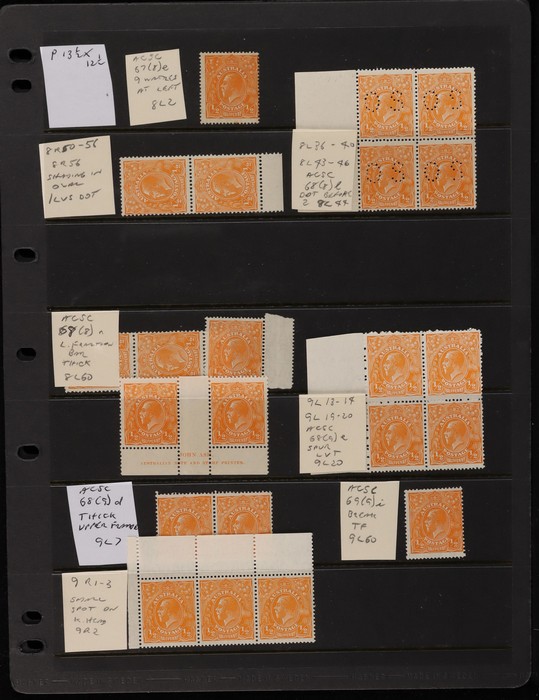 P 13½ x
12½
ACSC
67(8)e
AT LEFT
8L2
8R50-56
8R56
SHADING IN
OVAL
/LVS DOT
8L36-40
8L43-46
ACSC
68(8)l
DOT BEFORE
2 8L44
ACSC
68(8)n
L. FRACTION
BAR
THICK
8L60
9L13-14
9L19-20
ACSC
68(9)e
SPUR
LVT
9L20
ACSC
68(9)d
THICK
UPPER FRAME
9L7
ACSC
69(9)i
BREAK
TF
9L60
9R1-3
SMALL
SPOT ON
9R2
AUSTRALIA
HALFPENNY
JOHN ASH